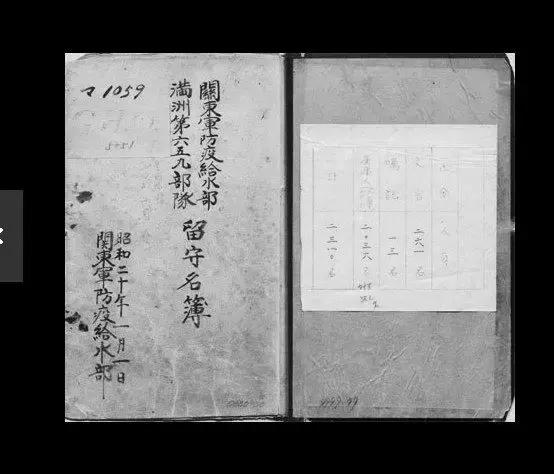 マ1059
關東軍防疫給水部
満洲第六五九部隊
留守名簿
昭和二十年一月一日
關東軍防疫給水部
文官 二六一名
嘱託 一三名
二〇三六名
計 二三一〇名